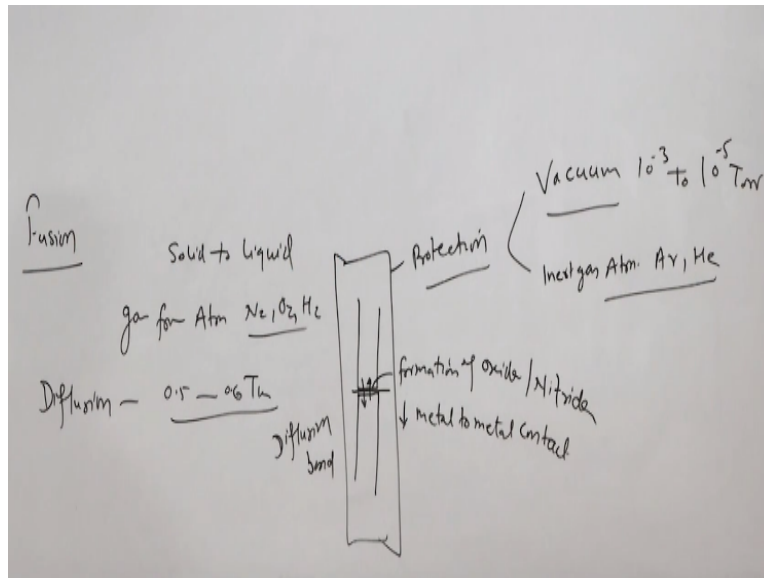 Fusion
Solid to liquid
gas from Atm N2, O2, H2
Diffusion - 0.5 - 0.6 Tm
Diffusion
bond
Protection
Vacuum 10^-3 to 10^-5 Torr
Inert gas Atm. Ar, He
formation of oxide/Nitride
↓ metal to metal contact